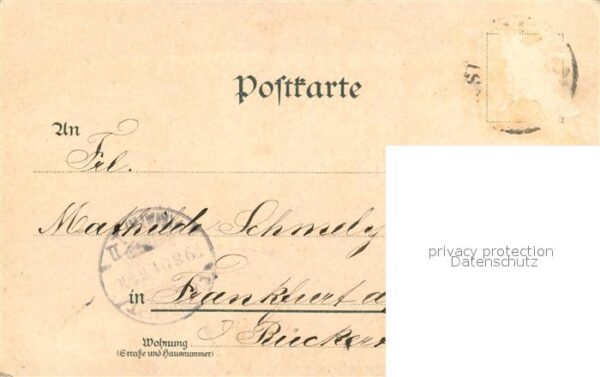 Postkarte
An
Frl.
Mathilde Schmelz
in Frankfurt a/
Wohnung
(Straße und Hausnummer)
privacy protection
Datenschutz